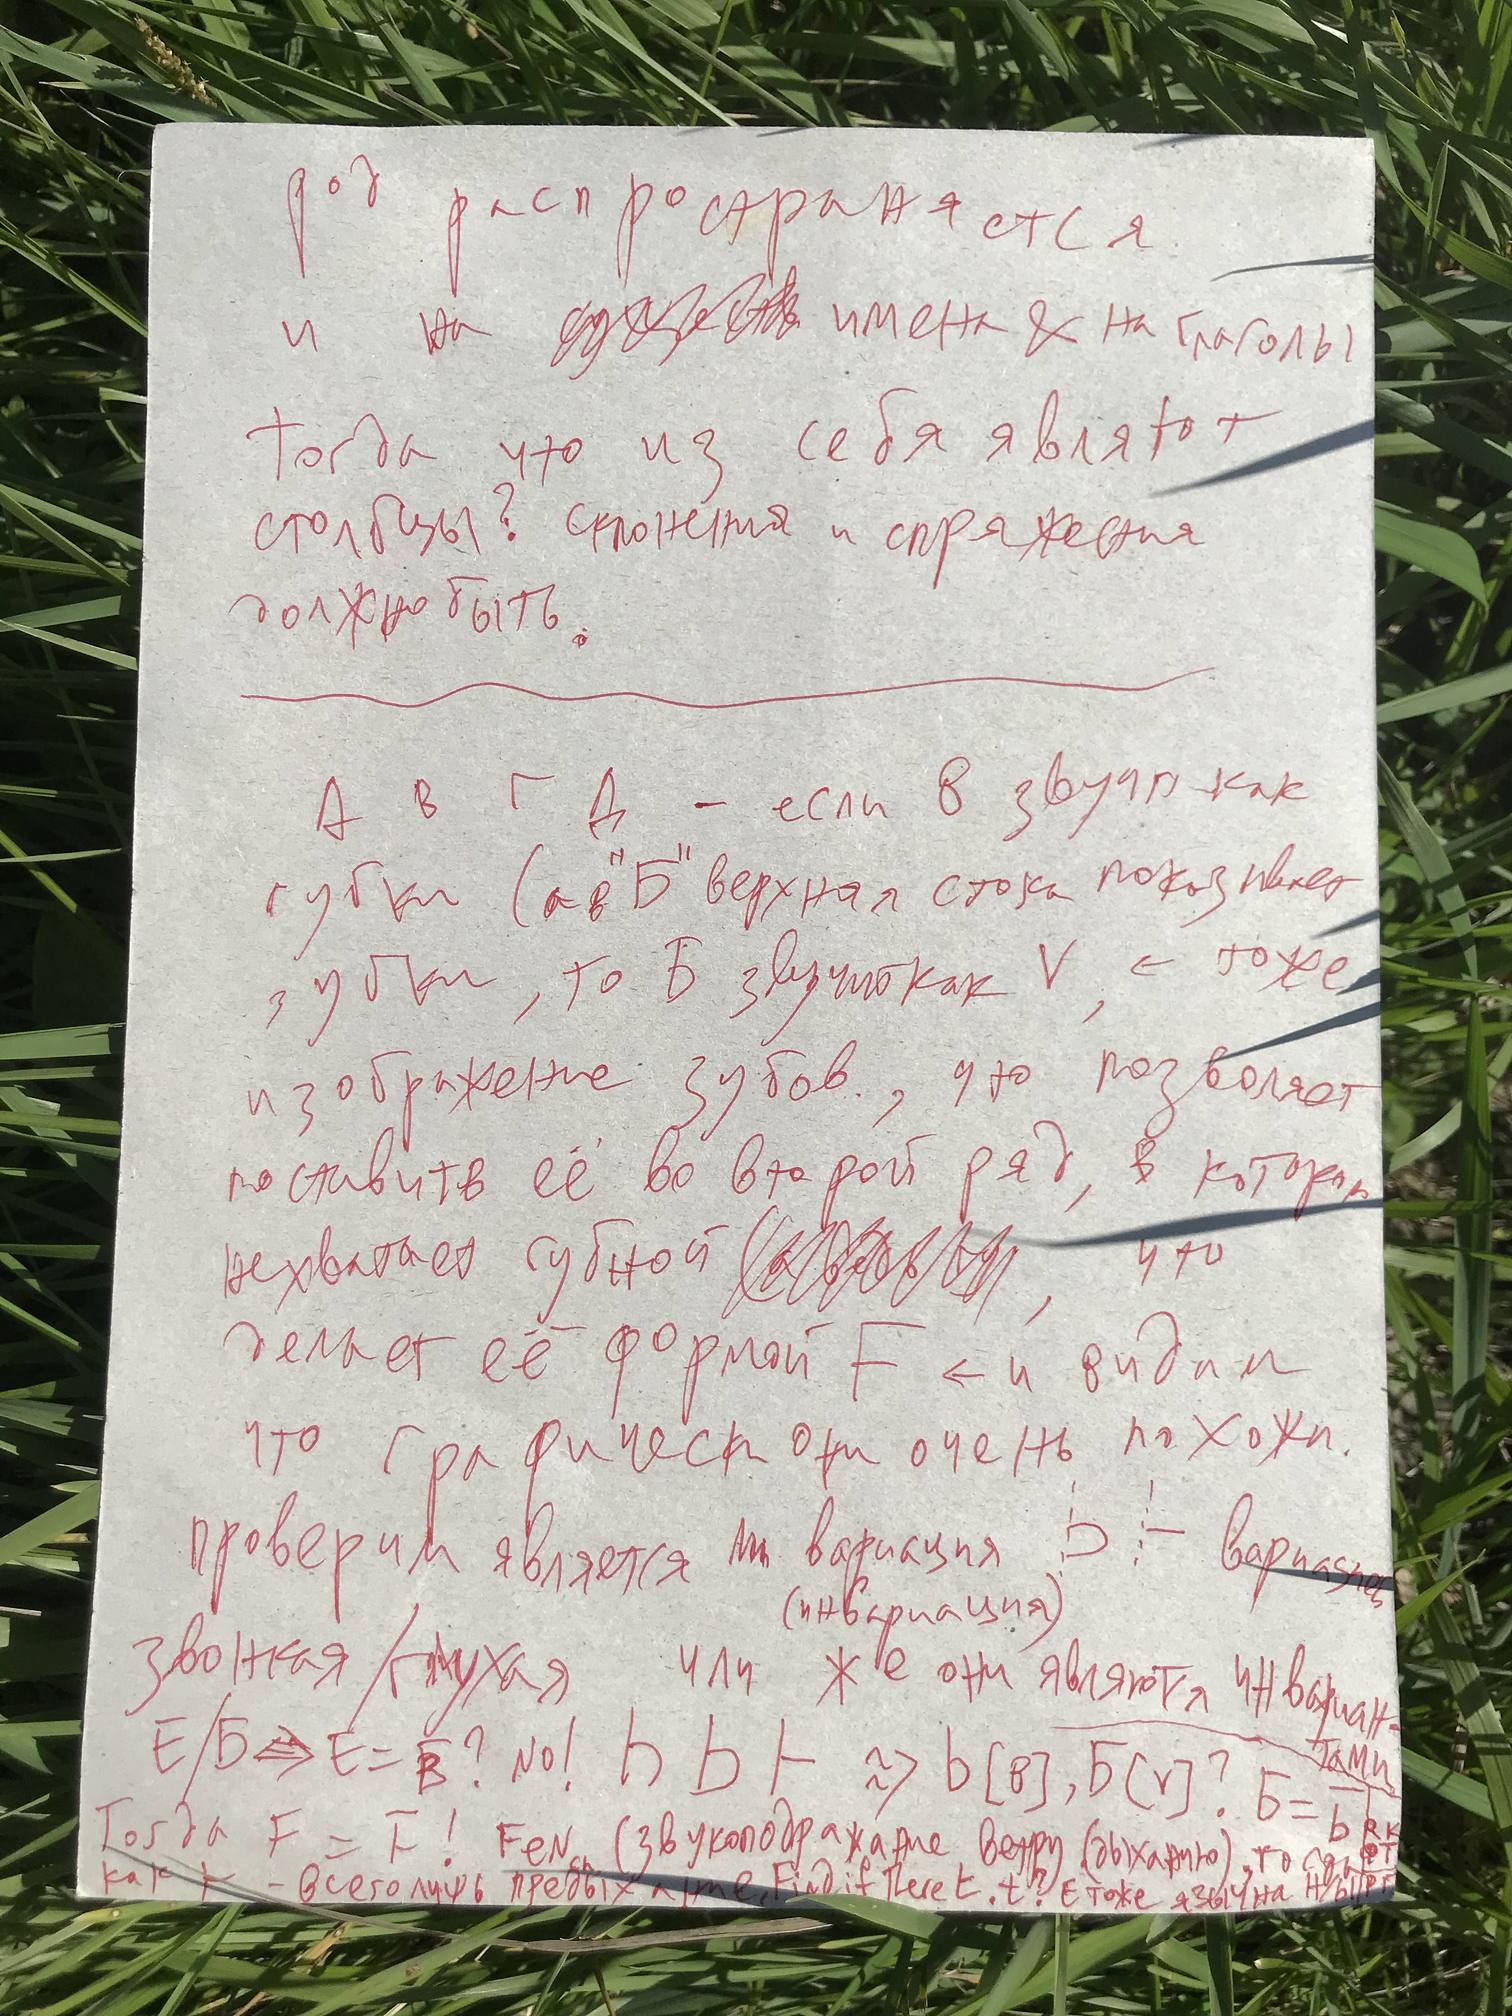 род распространяется
и на имена & на глаголы
тогда что из себя являют
столбцы? склонения и спряжения
должно быть.
А В Г Д - если В звучит как
губки (а в "Б" верхняя стока показывает
зубки, то Б звучит как V, ← тоже
изображение зубов, что позволяет
поставить её во второй ряд, в котором
нехватает губной, что
делает её формой F ← и видим
что графически они очень похожи.
проверим является ли вариация Ь Ͱ вариацией
(инвариация)
звонкая/глухая или же они являются инвариан-
тами
E/Б ⇒ E = Б? NO! b Ͱ ≈> b[в], Б[v]? Б = b̄
Тогда F = Ͱ̄! FEN (звукоподражание ветру (дыханию), тогда
как Ͱ - всего лишь предыхание. Find if there E. t? E тоже